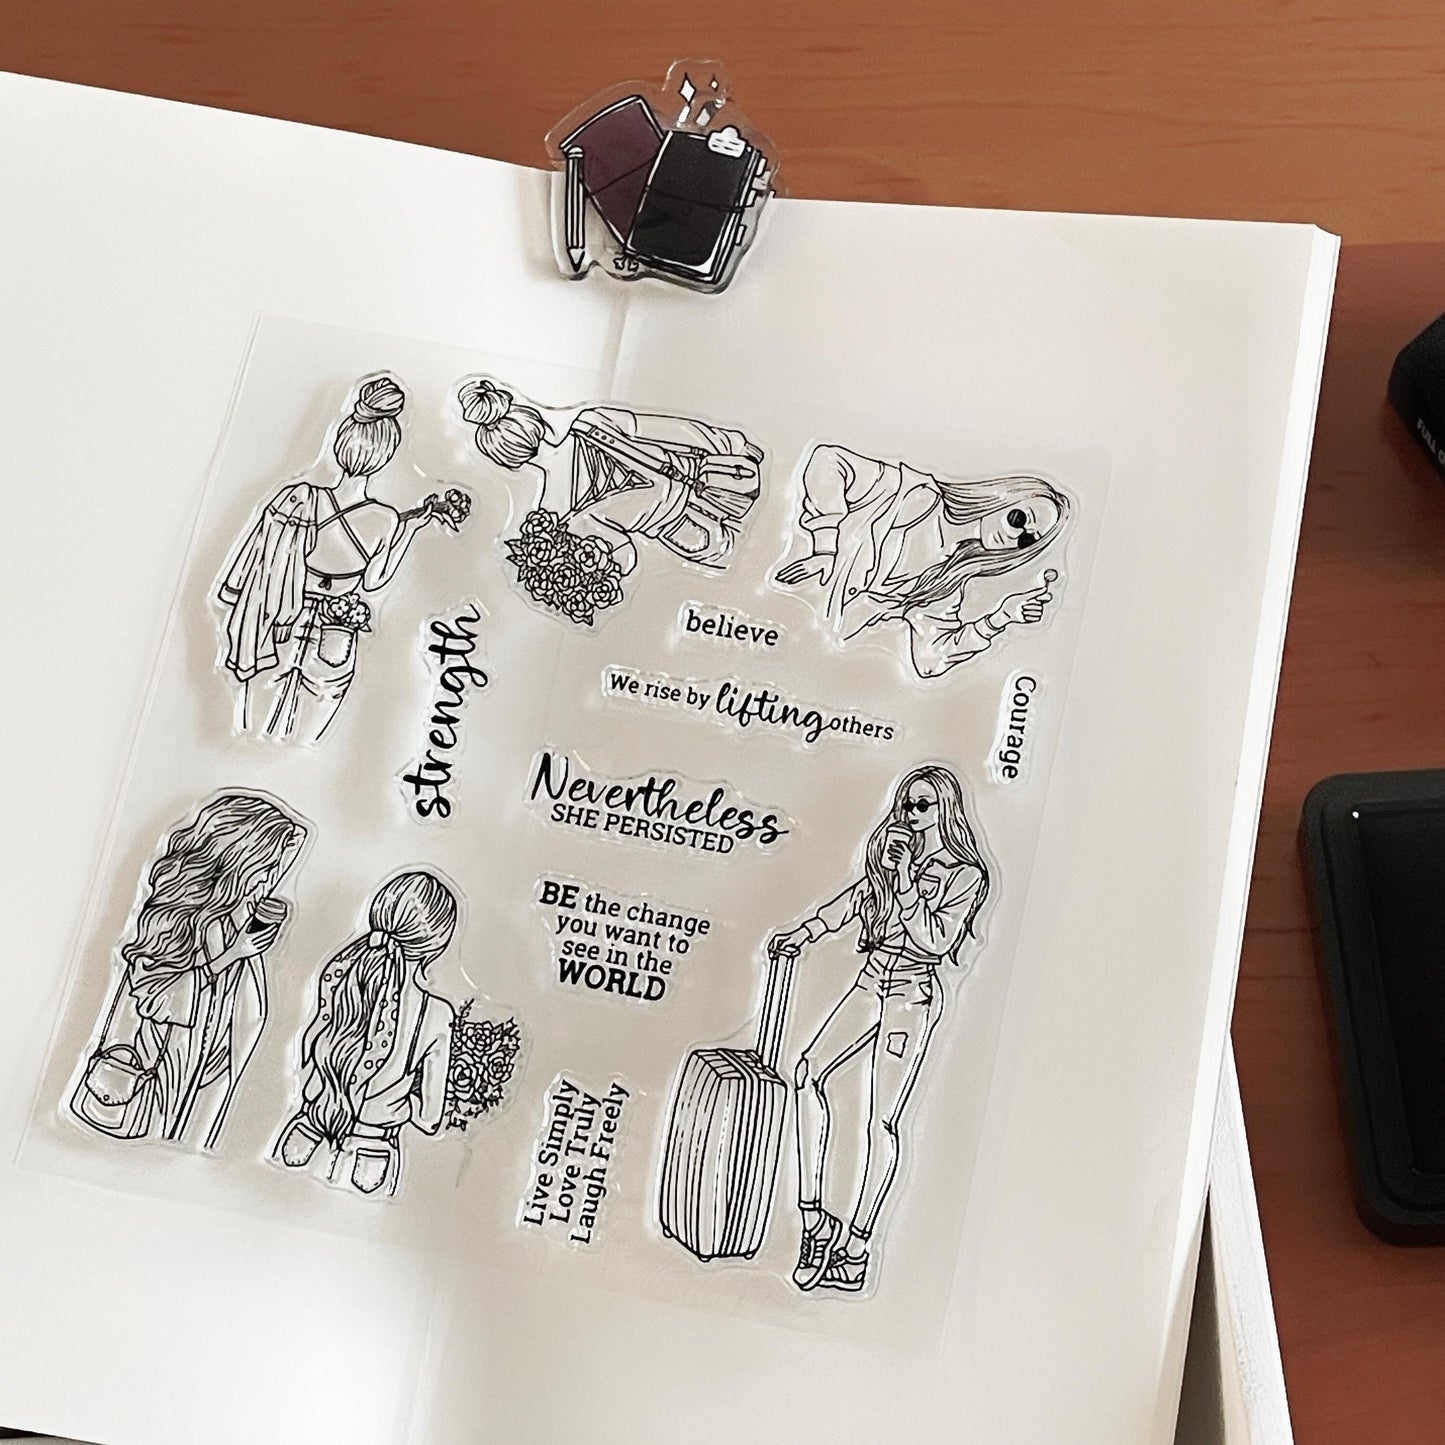 believe
strength
We rise by lifting others
Courage
Nevertheless
SHE PERSISTED
BE the change
you want to
see in the
WORLD
Live Simply
Love Truly
Laugh Freely
FULL